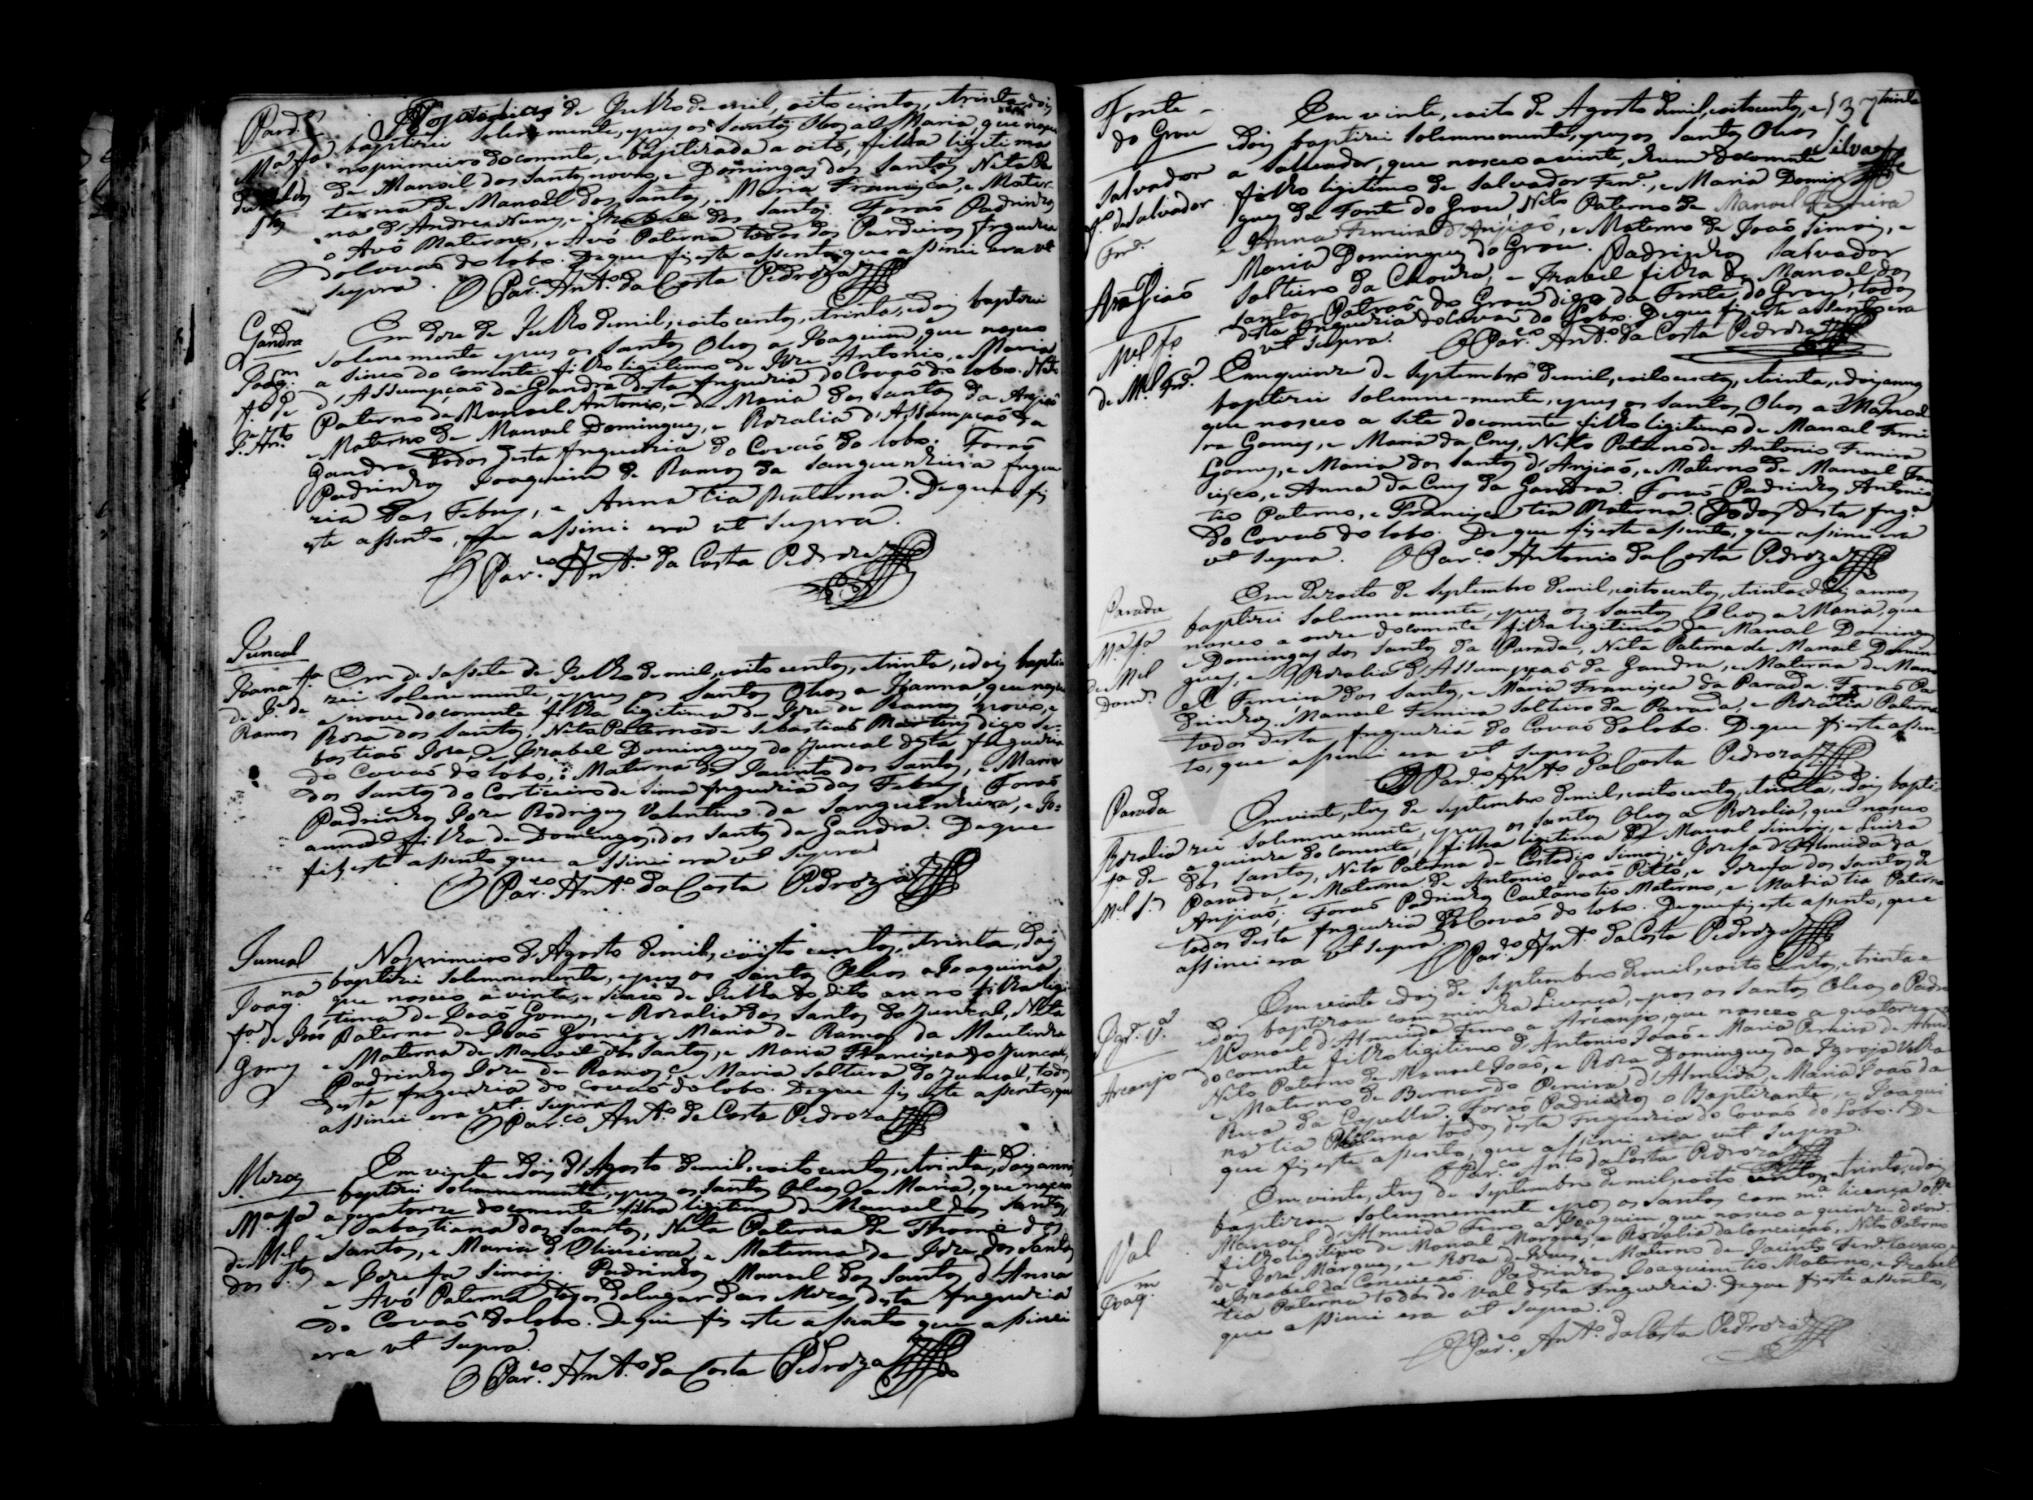 Pard.os
M.a f.a
de M.el dos
S.tos
de Julho de mil, oito centos, e trinta, e dois
baptizei solemnemente, e pus os Santos Oleos a Maria, que nasceo
no primeiro do corrente, e baptizada a oito, filha ligitima
de Manoel dos Santos novo, e Domingas dos Santos, Neta Pa
terna de Manoel dos Santos, e Maria Francisca, e Mater-
na d'Andre Nunes, e Izabel dos Santos. Foraõ Padrinhos
o Avô Materno, e Avó Paterna todos dos Pardeiros freguezia
do Covaõ do lobo. De que fiz este assento, que assinei era ut
supra. O Par.co Ant.o da Costa Pedroza
Gandra
Joaq.m
f.o de
J.e Ant.o
Em doze de Julho de mil, oito centos, e trinta, e dois baptizei
solenemente e pus os Santos Oleos a Joaquim, que nasceo
a sinco do corrente filho ligitimo de Joze Antonio, e Maria
d'Assumpçaõ da Gandra desta freguezia do Covaõ do lobo. Neto
Paterno de Manoel Antonio, e de Maria dos Santos da Anjiaõ
e Materno de Manoel Domingues, e Rozalia d'Assumpçaõ da
Gandra, todos desta freguezia do Covaõ do lobo. Foraõ
Padrinhos Joaquim de Ramos da Sanguinheira fregue
zia das Febres, e Anna tia Materna. De que fiz
este assento, que assinei era ut supra.
O Par.co Ant.o da Costa Pedroza
Juncal
Joana f.a
de J.e de
Ramos
Em desasete de Julho de mil, oito centos, e trinta, e dois bapti
zei solenemente, e pus os Santos Oleos a Joanna, que nasceo
a nove do corrente filha ligitima de Joze de Ramos novo, e
Roza dos Santos, Neta Paterna de Sebastiaõ Martins digo Se-
bastiaõ Joze, e Izabel Domingues do Juncal desta freguezia
do Covaõ do lobo, e Materna de Jacinto dos Santos, e Maria
dos Santos do Corticeiro de Sima freguezia das Febres. Foraõ
Padrinhos Joze Rodrigues Valentim da Sanguinheira, e Jo-
anna filha de Domingos dos Santos da Gandra. De que
fiz este assento que assinei era ut supra
O Par.co Ant.o da Costa Pedroza
Juncal
Joaq.na
f.a de Joaõ
Gomes
No primeiro d'Agosto de mil, oito centos, e trinta, e dois
baptizei solemnemente, e pus os Santos Oleos a Joaquina
que nasceo a vinte, e sinco de Julho do dito anno filha ligi
tima de Joaõ Gomes, e Rozalia dos Santos do Juncal, Neta
Paterna de Joaõ Gomes e Maria de Ramos da Moutinha
e Materna de Manoel dos Santos, e Maria Francisca do Juncal.
Padrinhos Joze de Ramos, e Maria solteira do Juncal, todos
desta freguezia do Covaõ do lobo. De que fiz este assento, que
assinei era ut supra O Par.co Ant.o da Costa Pedroza
Mezas
M.a f.a
de M.el
dos S.tos
Em vinte e dois d'Agosto de mil, oito centos, e trinta, e dois annos
baptizei solemnemente, e pus os Santos Oleos a Maria, que nasceo
a quatorze do corrente filha ligitima de Manoel dos Santos,
e Sabastiana dos Santos, Neta Paterna de Thomé dos
Santos, e Maria d'Oliveira, e Materna de Joze dos Santos
e Jozefa Simois. Padrinhos Manoel dos Santos d'Anna
e Avó Paterna todos do lugar das Mezas desta freguezia
do Covaõ do lobo. De que fiz este assento que assinei
era ut supra.
O Par.co Ant.o da Costa Pedroza
137
Silva
Fonte
do Grou
Salvador
f.o de Salvador
Frr.a
Em vinte, e oito de Agosto de mil, oito centos, e trinta
e dois baptizei solemnemente, e pus os Santos Oleos
a Salvador, que nasceo a vinte, e hum do corrente
filho ligitimo de Salvador Ferr.a, e Maria Domin
gues da Fonte do Grou, Neto Paterno de Manoel Ferreira
e Anna Ferreira d'Anjiaõ, e Materno de Joaõ Simois, e
Maria Domingues do Grou. Padrinhos Salvador
solteiro da Choura, e Izabel filha de Manoel dos
Santos Patraõ do Grou digo da Fonte do Grou, todos
desta freguezia do Covaõ do Lobo. De que fiz este assento era
ut supra. O Par.co Ant.o da Costa Pedroza
Anjiaõ
M.el f.o
de M.el Frr.a
Em quinze de Septembro de mil, oito centos, e trinta, e dois annos
baptizei solemne-mente, e pus os Santos Oleos a Manoel
que nasceo a sete do corrente filho ligitimo de Manoel Ferrei
ra Gomes, e Maria da Cruz, Neto Paterno de Antonio Ferreira
Gomes, e Maria dos Santos d'Anjiaõ, e Materno de Manoel Fran
cisco, e Anna da Cruz da Gandra. Foraõ Padrinhos Antonio
tio Paterno, e Francisca tia Materna. Todos desta freg.a
do Covaõ do lobo. De que fiz este assento, que assinei era
ut supra. O Par.co Antonio da Costa Pedroza
Parada
M.a f.a
de M.el
Dom.es
Em dezoito de Septembro de mil, oito centos, e trinta, e dois annos
baptizei solemnemente, e pus os Santos Oleos a Maria, que
nasceo a onze do corrente filha ligitima de Manoel Domingues
e Domingas dos Santos da Parada, Neta Paterna de Manoel Domin
gues, e Rozalia d'Assumpçaõ da Gandra, e Materna de Mano
el Ferreira dos Santos, e Maria Francisca da Parada. Foraõ Pa
drinhos Manoel Ferreira solteiro da Parada, e Rozalia Paterna
todos desta freguezia do Covaõ do lobo. De que fiz este assen
to, que assinei era ut supra
O Par.co Ant.o da Costa Pedroza
Parada
Rozalia
f.a de
M.el S.es
Em vinte, e dois de Septembro de mil, oito centos, e trinta, e dois bapti-
zei solemnemente, e pus os Santos Oleos a Rozalia, que nasceo
a quinze do corrente, filha ligitima de Manoel Simois, e Luiza
dos Santos, Neta Paterna de Custodio Simois, e Jozefa d'Almeida da
Parada, e Materna de Antonio Joaõ Petto, e Jozefa dos Santos de
Anjiaõ; Foraõ Padrinhos Caetano tio Materno, e Maria tia Paterna
todos desta freguezia do Covaõ do lobo. De que fiz este assento, que
assinei era ut supra. O Par.co Ant.o da Costa Pedroza
Igr.a V.a
Arcanjo
Em vinte e dois de Septembro de mil, oito centos, e trinta e
dois baptizou com minha Licença, e pos os Santos Oleos o Padre
Manoel d'Almeida Ferro a Arcanjo, que nasceo a quatorze
do corrente filho ligitimo d'Antonio Joaõ e Maria Pereira de Almeida
Neto Paterno de Manoel Joaõ, e Roza Domingues da Igreja Velha
e Materno de Bernardo Pereira d'Almeida, e Maria Joaõ da
Rua da Capella. Foraõ Padrinhos o Baptizante, e Joaqui
na tia Paterna todos desta freguezia do Covaõ do Lobo. De
que fiz este assento, que assinei era ut supra.
O Par.co Ant.o da Costa Pedroza
Val
Joaq.m
Em vinte, e tres de Septembro de mil, oito centos, e trinta, e dois
baptizou solemnemente e pos os Santos com m.a licença o P.e
Manoel d'Almeida Ferro a Joaquim, que nasceo a quinze do corr.e
filho ligitimo de Manoel Marques, e Rozalia da Conceiçaõ, Neto Paterno
de Joze Marques, e Roza de Jezus, e Materno de Jacinto Ferr.a
e Izabel da Conceiçaõ. Padrinhos Joaquim tio Materno, e Izabel
tia Paterna todos do Val desta freguezia. De que fiz este assento,
que assinei era ut supra.
O Par.co Ant.o da Costa Pedroza